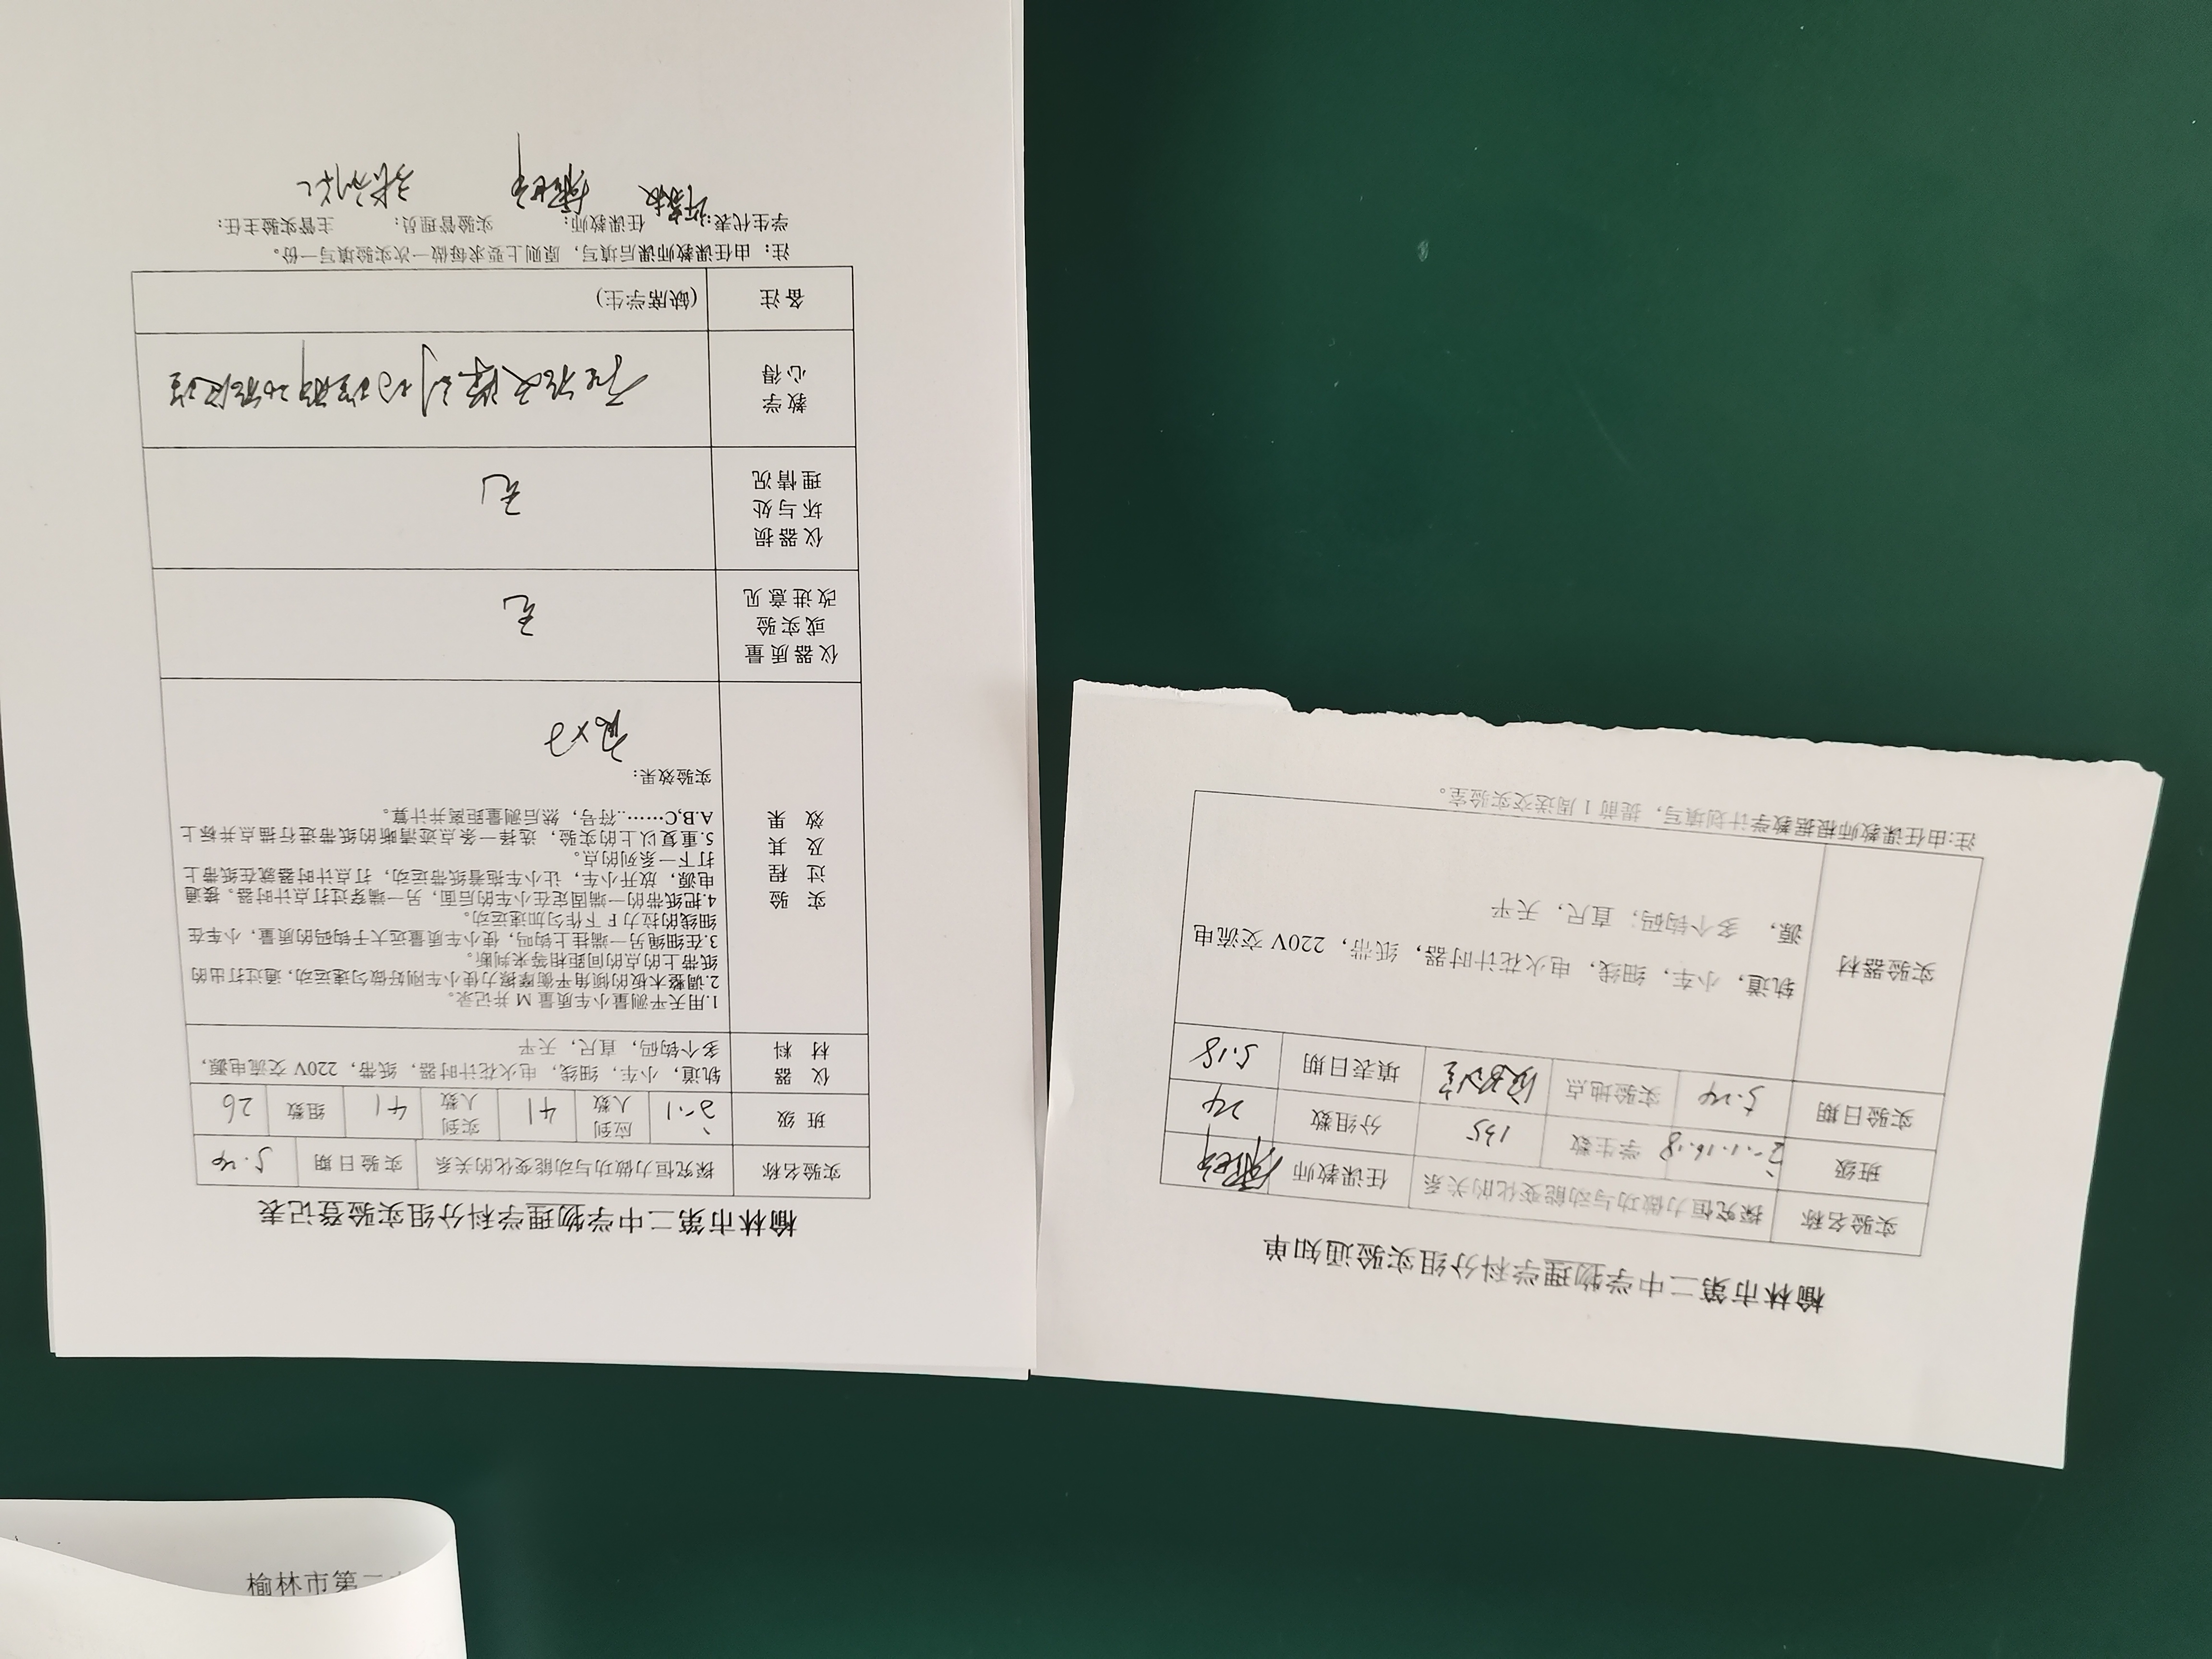 榆林市第二中学物理学科分组实验登记表
实验名称 探究恒力做功与动能变化的关系 实验日期 5.24
班级 应到人数 41 实到人数 41 组数 26
仪器材料
轨道，小车，细线，电火花计时器，纸带，220V 交流电源，
多个钩码，直尺，天平
实验过程及其效果
1.用天平测量小车质量 M 并记录。
2.调整木板的倾角平衡摩擦力使小车刚好做匀速运动，通过打出的
纸带上的点的间距相等来判断。
3.在细绳另一端挂上钩吗，使小车质量远大于钩码的质量，小车在
细线的拉力 F 下作匀加速运动。
4.把纸带的一端固定在小车的后面，另一端穿过打点计时器。接通
电源，放开小车，让小车拖着纸带运动，打点计时器就在纸带上
打下一系列的点。
5.重复以上的实验，选择一条点迹清晰的纸带进行描点并标上
A.B,C……..符号，然后测量距离并计算。
实验效果：
良好
仪器质量或实验改进意见
无
仪器损坏与处理情况
无
教学心得
动能定理
备注 (缺席学生)
注：由任课教师课后填写，原则上要求每做一次实验填写一份。
学生代表： 任课教师： 实验管理员： 主管实验主任：
榆林市第二中学物理学科分组实验通知单
实验名称 探究恒力做功与动能变化的关系 任课教师
班级 学生数 135 分组数 24
实验日期 5.24 实验地点 实验室 填表日期 5.18
实验器材
轨道，小车，细线，电火花计时器，纸带，220V 交流电
源，多个钩码，直尺，天平
注:由任课教师根据教学计划填写，提前 1 周送交实验室。
榆林市第二